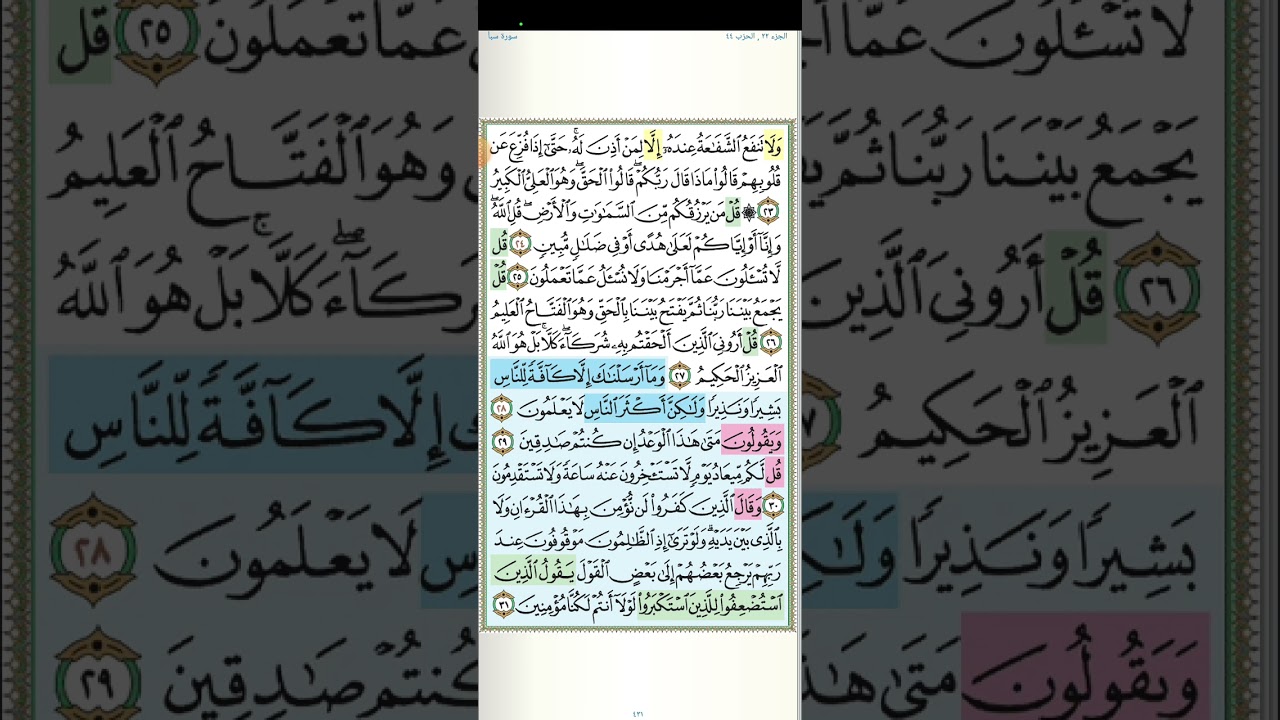 الجزء ٢٢ , الحزب ٤٤
سورة سبأ
وَلَا تَنفَعُ ٱلشَّفَٰعَةُ عِندَهُۥٓ إِلَّا لِمَنْ أَذِنَ لَهُۥۚ حَتَّىٰٓ إِذَا فُزِّعَ عَن
قُلُوبِهِمْ قَالُوا۟ مَاذَا قَالَ رَبُّكُمْۖ قَالُوا۟ ٱلْحَقَّۖ وَهُوَ ٱلْعَلِىُّ ٱلْكَبِيرُ
٢٣ ۞ قُلْ مَن يَرْزُقُكُم مِّنَ ٱلسَّمَٰوَٰتِ وَٱلْأَرْضِۖ قُلِ ٱللَّهُۖ
وَإِنَّآ أَوْ إِيَّاكُمْ لَعَلَىٰ هُدًى أَوْ فِى ضَلَٰلٍ مُّبِينٍ ٢٤ قُل
لَّا تُسْـَٔلُونَ عَمَّآ أَجْرَمْنَا وَلَا نُسْـَٔلُ عَمَّا تَعْمَلُونَ ٢٥ قُلْ
يَجْمَعُ بَيْنَنَا رَبُّنَا ثُمَّ يَفْتَحُ بَيْنَنَا بِٱلْحَقِّ وَهُوَ ٱلْفَتَّاحُ ٱلْعَلِيمُ
٢٦ قُلْ أَرُونِىَ ٱلَّذِينَ أَلْحَقْتُم بِهِۦ شُرَكَآءَۖ كَلَّاۚ بَلْ هُوَ ٱللَّهُ
ٱلْعَزِيزُ ٱلْحَكِيمُ ٢٧ وَمَآ أَرْسَلْنَٰكَ إِلَّا كَآفَّةً لِّلنَّاسِ
بَشِيرًا وَنَذِيرًا وَلَٰكِنَّ أَكْثَرَ ٱلنَّاسِ لَا يَعْلَمُونَ ٢٨
وَيَقُولُونَ مَتَىٰ هَٰذَا ٱلْوَعْدُ إِن كُنتُمْ صَٰدِقِينَ ٢٩
قُل لَّكُم مِّيعَادُ يَوْمٍ لَّا تَسْتَـْٔخِرُونَ عَنْهُ سَاعَةً وَلَا تَسْتَقْدِمُونَ
٣٠ وَقَالَ ٱلَّذِينَ كَفَرُوا۟ لَن نُّؤْمِنَ بِهَٰذَا ٱلْقُرْءَانِ وَلَا
بِٱلَّذِى بَيْنَ يَدَيْهِۗ وَلَوْ تَرَىٰٓ إِذِ ٱلظَّٰلِمُونَ مَوْقُوفُونَ عِندَ
رَبِّهِمْ يَرْجِعُ بَعْضُهُمْ إِلَىٰ بَعْضٍ ٱلْقَوْلَ يَقُولُ ٱلَّذِينَ
ٱسْتُضْعِفُوا۟ لِلَّذِينَ ٱسْتَكْبَرُوا۟ لَوْلَآ أَنتُمْ لَكُنَّا مُؤْمِنِينَ ٣١
٤٣١